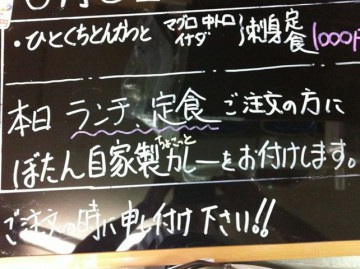 ・ひとくちとんかつ マグロ 中トロ イナダ 刺身定食 1000円
本日ランチ、定食ご注文の方に
ぼたん自家製ちょこっとカレーをお付けします。
ご注文の時に申し付け下さい!!